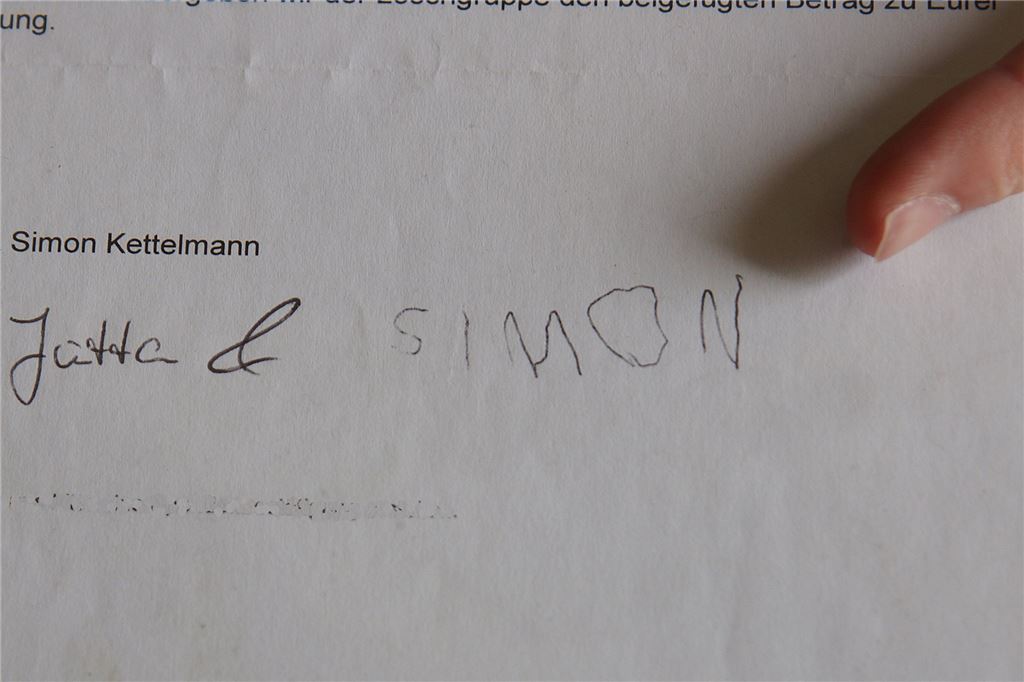 wir der Lesengruppe den beigefügten Betrag zu Eurer
ung.
Simon Kettelmann
Jutta & SIMON